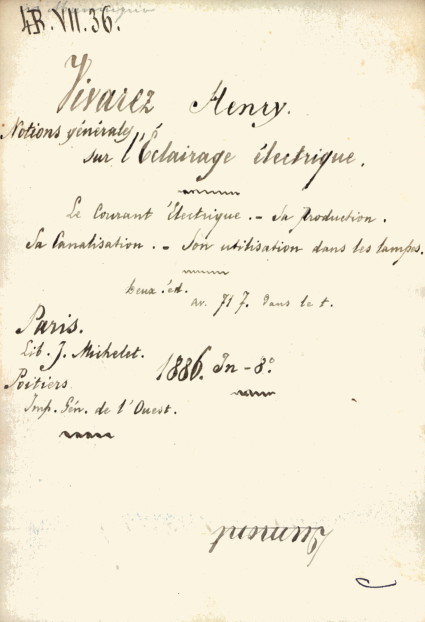 4B.VII.36.
Vivarez Henry.
Notions générales
sur l'Éclairage électrique.
Le Courant Électrique. - Sa Production.
Sa Canalisation. - Son utilisation dans les lampes.
Deux. éd.
av. 71 f. dans le t.
Paris.
Lib. J. Michelet.
1886. In-8°.
Poitiers.
Imp. Gén. de l'Ouest.